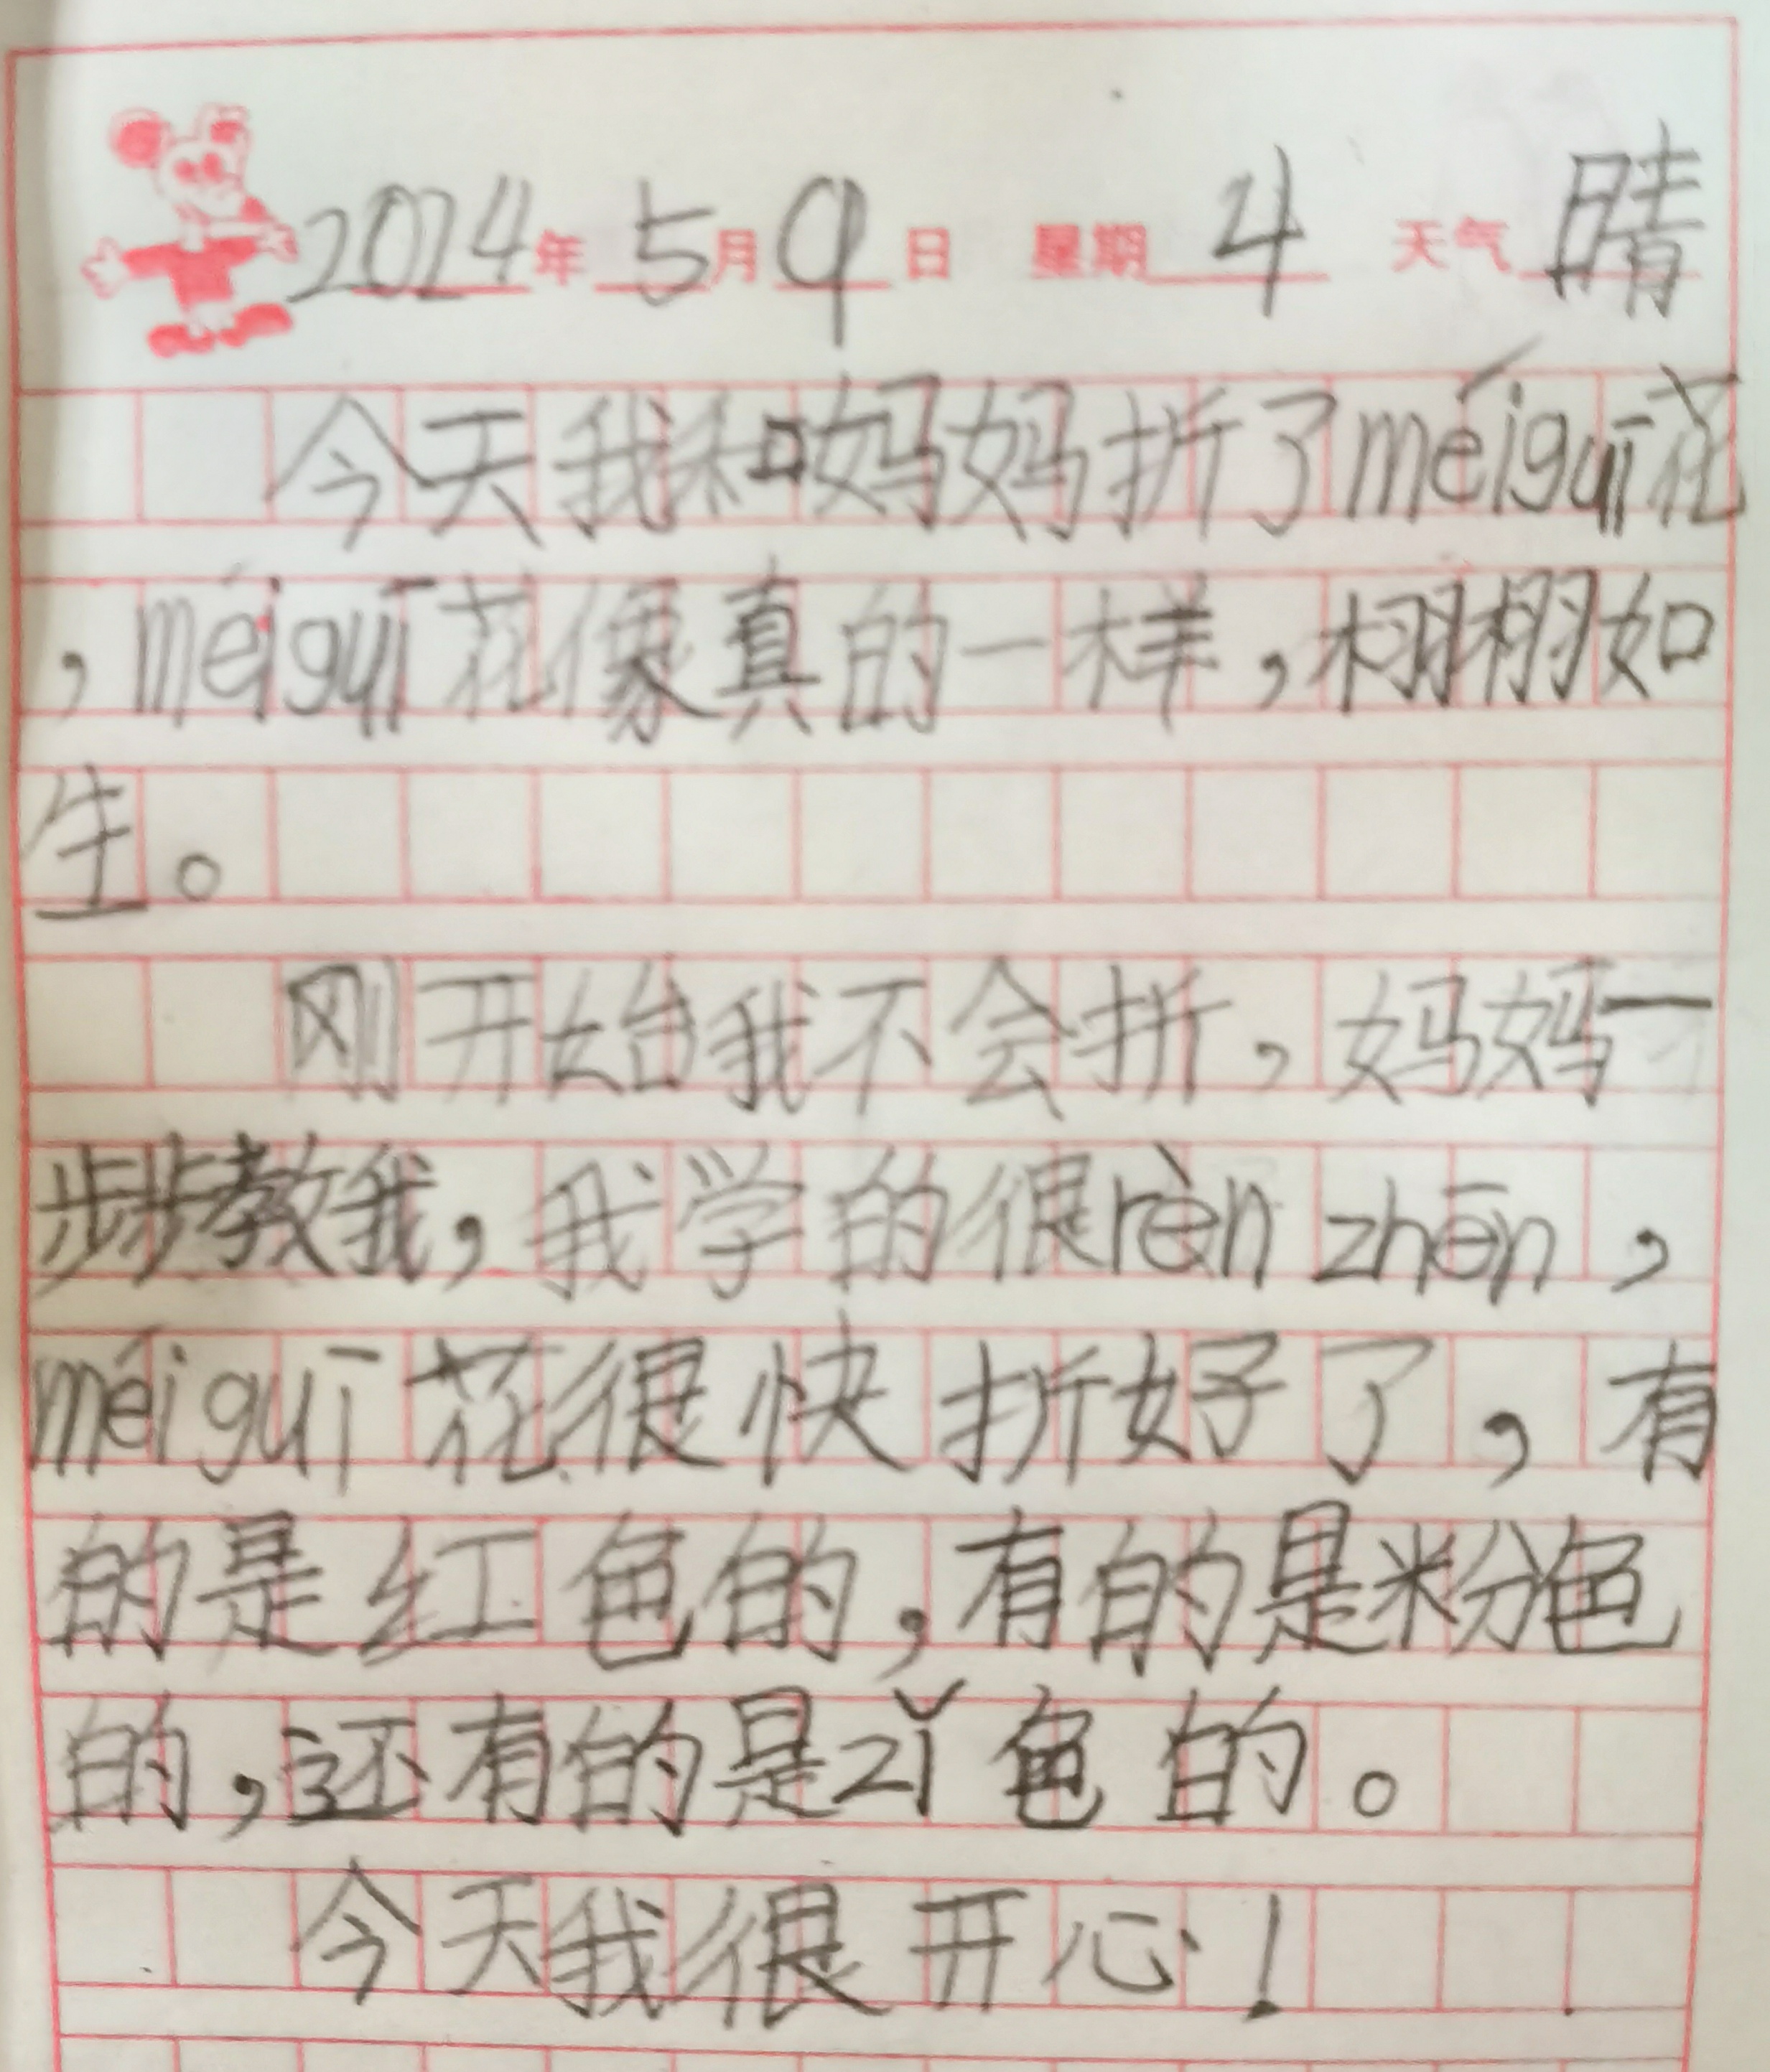 2024年5月9日 星期4 天气晴
今天我和妈妈折了méiguī花
，méiguī花像真的一样，栩栩如
生。
刚开始我不会折，妈妈一
步步教我，我学的很rèn zhēn，
méiguī花很快折好了，有
的是红色的，有的是粉色
的，还有的是zǐ色的。
今天我很开心！